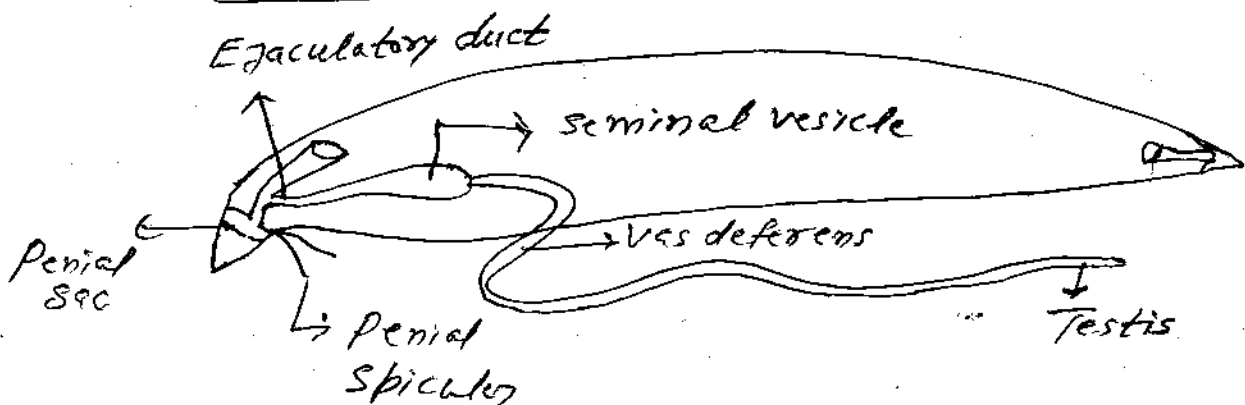 Ejaculatory duct
seminal vesicle
Vas deferens
Penial
sac
Testis
Penial
spicules